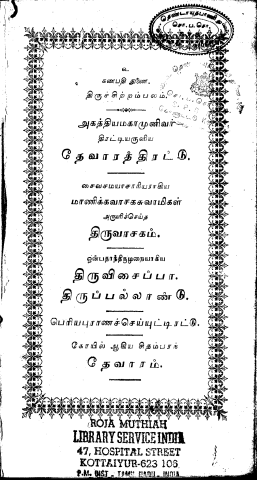 உ
கணபதி துணை.
திருச்சிற்றம்பலம்.
அகத்தியமகாமுனிவர்
திரட்டியருளிய
தேவாரத்திரட்டு.
சைவசமயாசாரியராகிய
மாணிக்கவாசகசுவாமிகள்
அருளிச்செய்த
திருவாசகம்.
ஒன்பதாந்திருமுறையாகிய
திருவிசைப்பா.
திருப்பல்லாண்டு.
பெரியபுராணச்செய்யுட்டிரட்டு.
கோயில் ஆகிய சிதம்பரத்
தேவாரம்.
ROJA MUTHIAH
LIBRARY SERVICE INDIA
47, HOSPITAL STREET
KOTTAIYUR-623 106
P.M. DIST - TAMIL NADU - INDIA